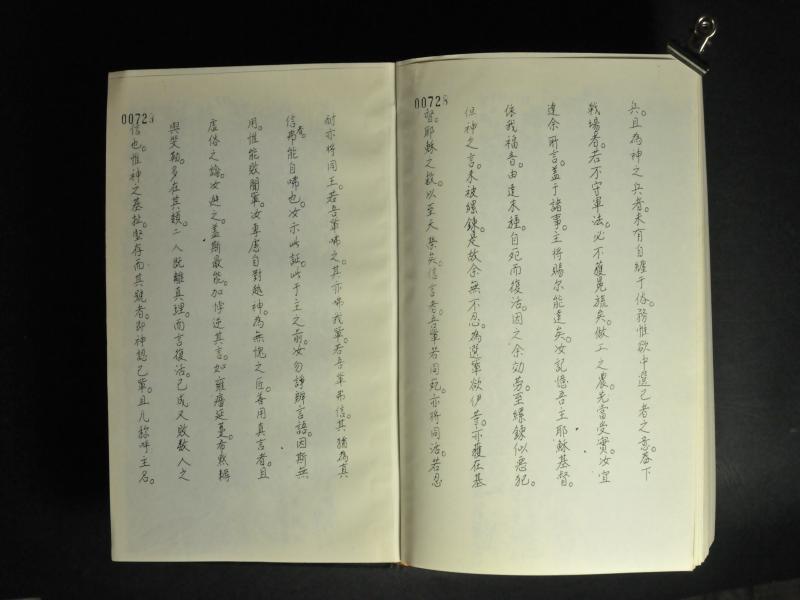 00728
兵。且為神之兵者未有自纏于俗務惟欲中選己者之意。下
戰場者。若不守軍法。必不獲冕旒矣。做工之農先當受實。汝宜
達余所言。盖于諸事。主将賜尔能達矣。汝記憶吾主耶穌基督。
依我福音。由達未種。自死而復活。因之余効劳。至縲鍊似惡犯。
但神之言未被縲鍊。是故余無不忍為選輩欲伊等亦獲在基
督。耶穌之救。以至天荣矣。信言者。吾輩若同死。亦将同活。若忍
0072
耐亦将同王。若吾輩咈之。其亦咈我輩。若吾輩弗信。其猶為真
信。弗能自咈也。汝示此証。此于主之前。汝勿諍辦言語。因斯無
用。惟能敗聞輩。汝專慮自對越神。為無愧之匠善用真言者。且
虛俗之論。汝避之。盖斯最能。加悖逆其言。如癰延蔓。布煕
與斐勒多在其類。二人既離真理。而言復活。已成又敗数人之
信也。惟神之基址。堅存而其號者。即神認己輩。且凡称呼主名。